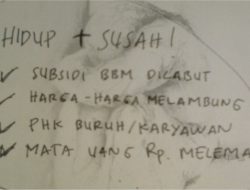 HIDUP + SUSAH!
✓ SUBSIDI BBM DICABUT
✓ HARGA-HARGA MELAMBUNG
✓ PHK BURUH/KARYAWAN
✓ MATA UANG Rp. MELEMA